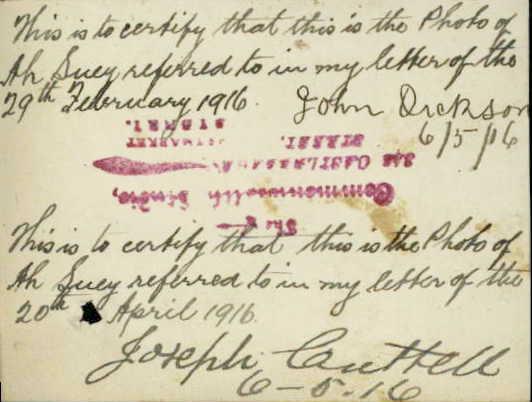 This is to certify that this is the Photo of
Ah Suey referred to in my letter of the
29th February 1916. John Dickson
6/5/16
SYDNEY.
HAYMARKET
STREET.
CASTLEREAGH
Commonwealth Studio,
The
This is to certify that this is the Photo of
Ah Suey referred to in my letter of the
20th April 1916.
Joseph Cuttell
6-5-16